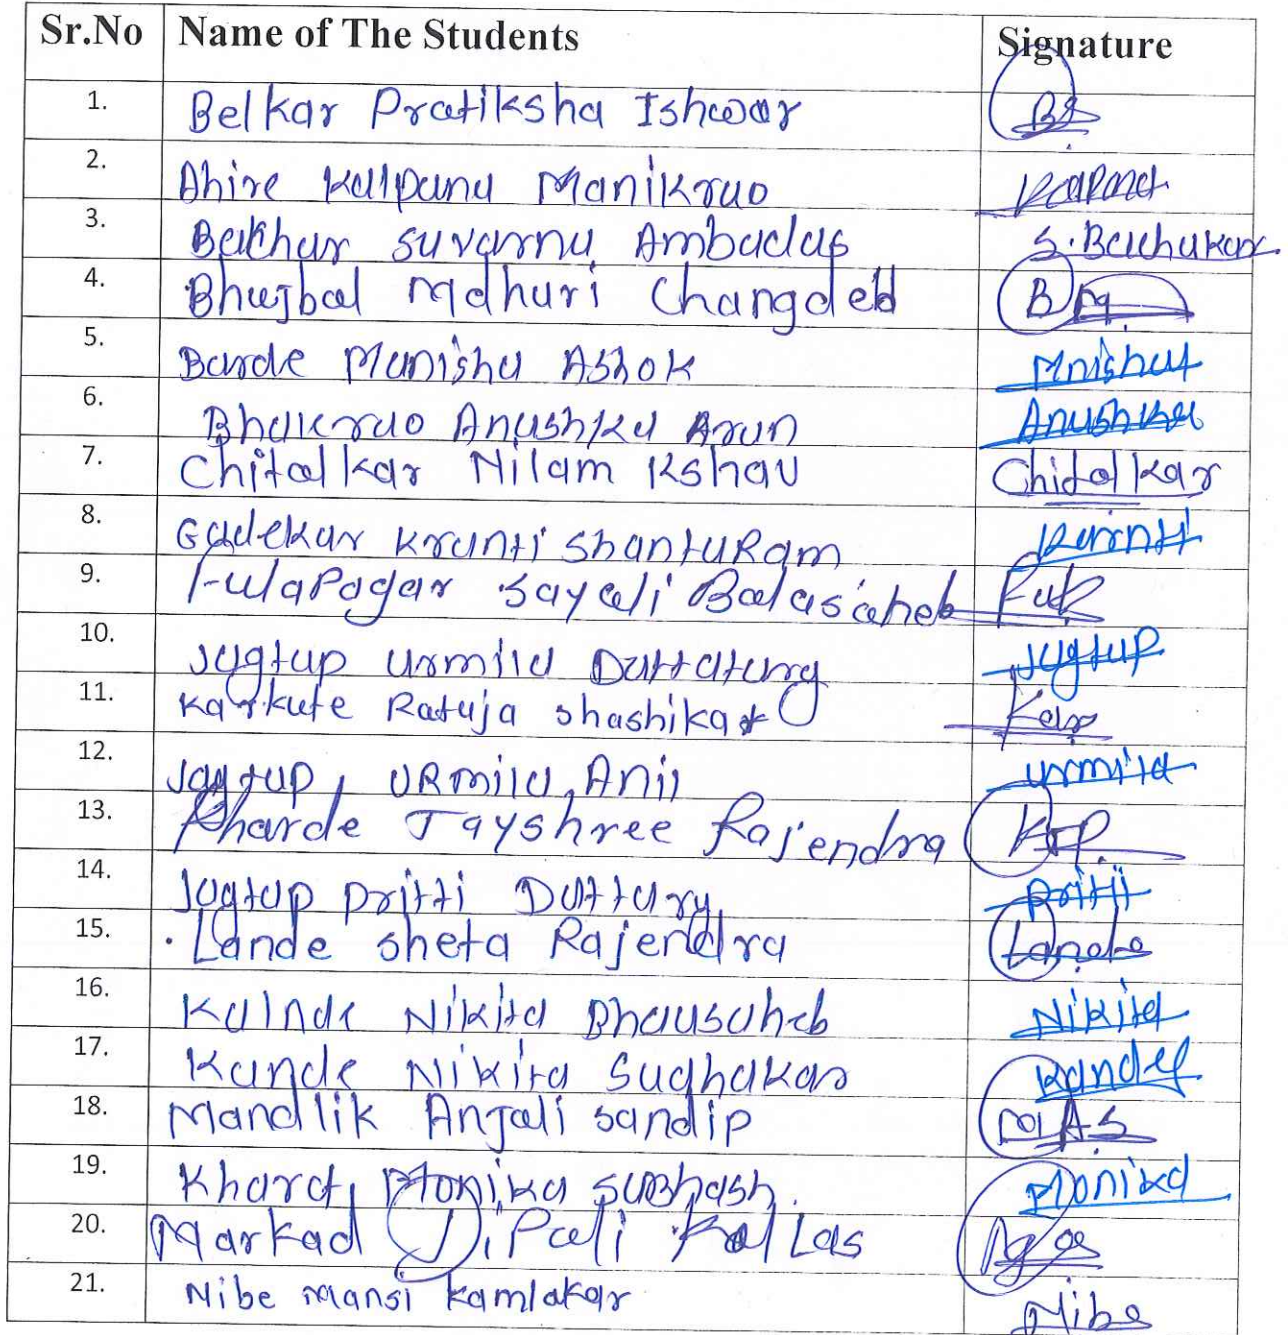 Sr.No Name of The Students Signature
1. Belkar Pratiksha Ishwar Bs
2. Ahire Kalpana Manikrao
3. Suvarna Ambadas S. Bachukar
4. Bhujbal Madhuri Changdeb B M
5. Barde Manisha Ashok Mnisha
6. Bhakrao Anushka Arun Anushka
7. Chitalkar Nilam Kshav Chitalkar
8. Gadekar Kranti ShantuRam
9. Fulapagar Sayali Balasaheb Ful
10. Jagtap Urmila Jagtap
11. Karkute Ratuja Shashika Kar
12. Jagtap URmila Anil Urmila
13. Kharde Jayshree Rajendra
14. Jagtap Pritti Pritii
15. Lande Sheta Rajendra Lande
16. Nikita Bhausaheb Nikita
17. Kande Nikita Sudhakar Kande
18. Mandlik Anjali Sandip M A.S
19. Kharat Monika Subhash. Monika
20. Markad Dipali Kallas
21. Nibe Mansi Kamlakar Nibe